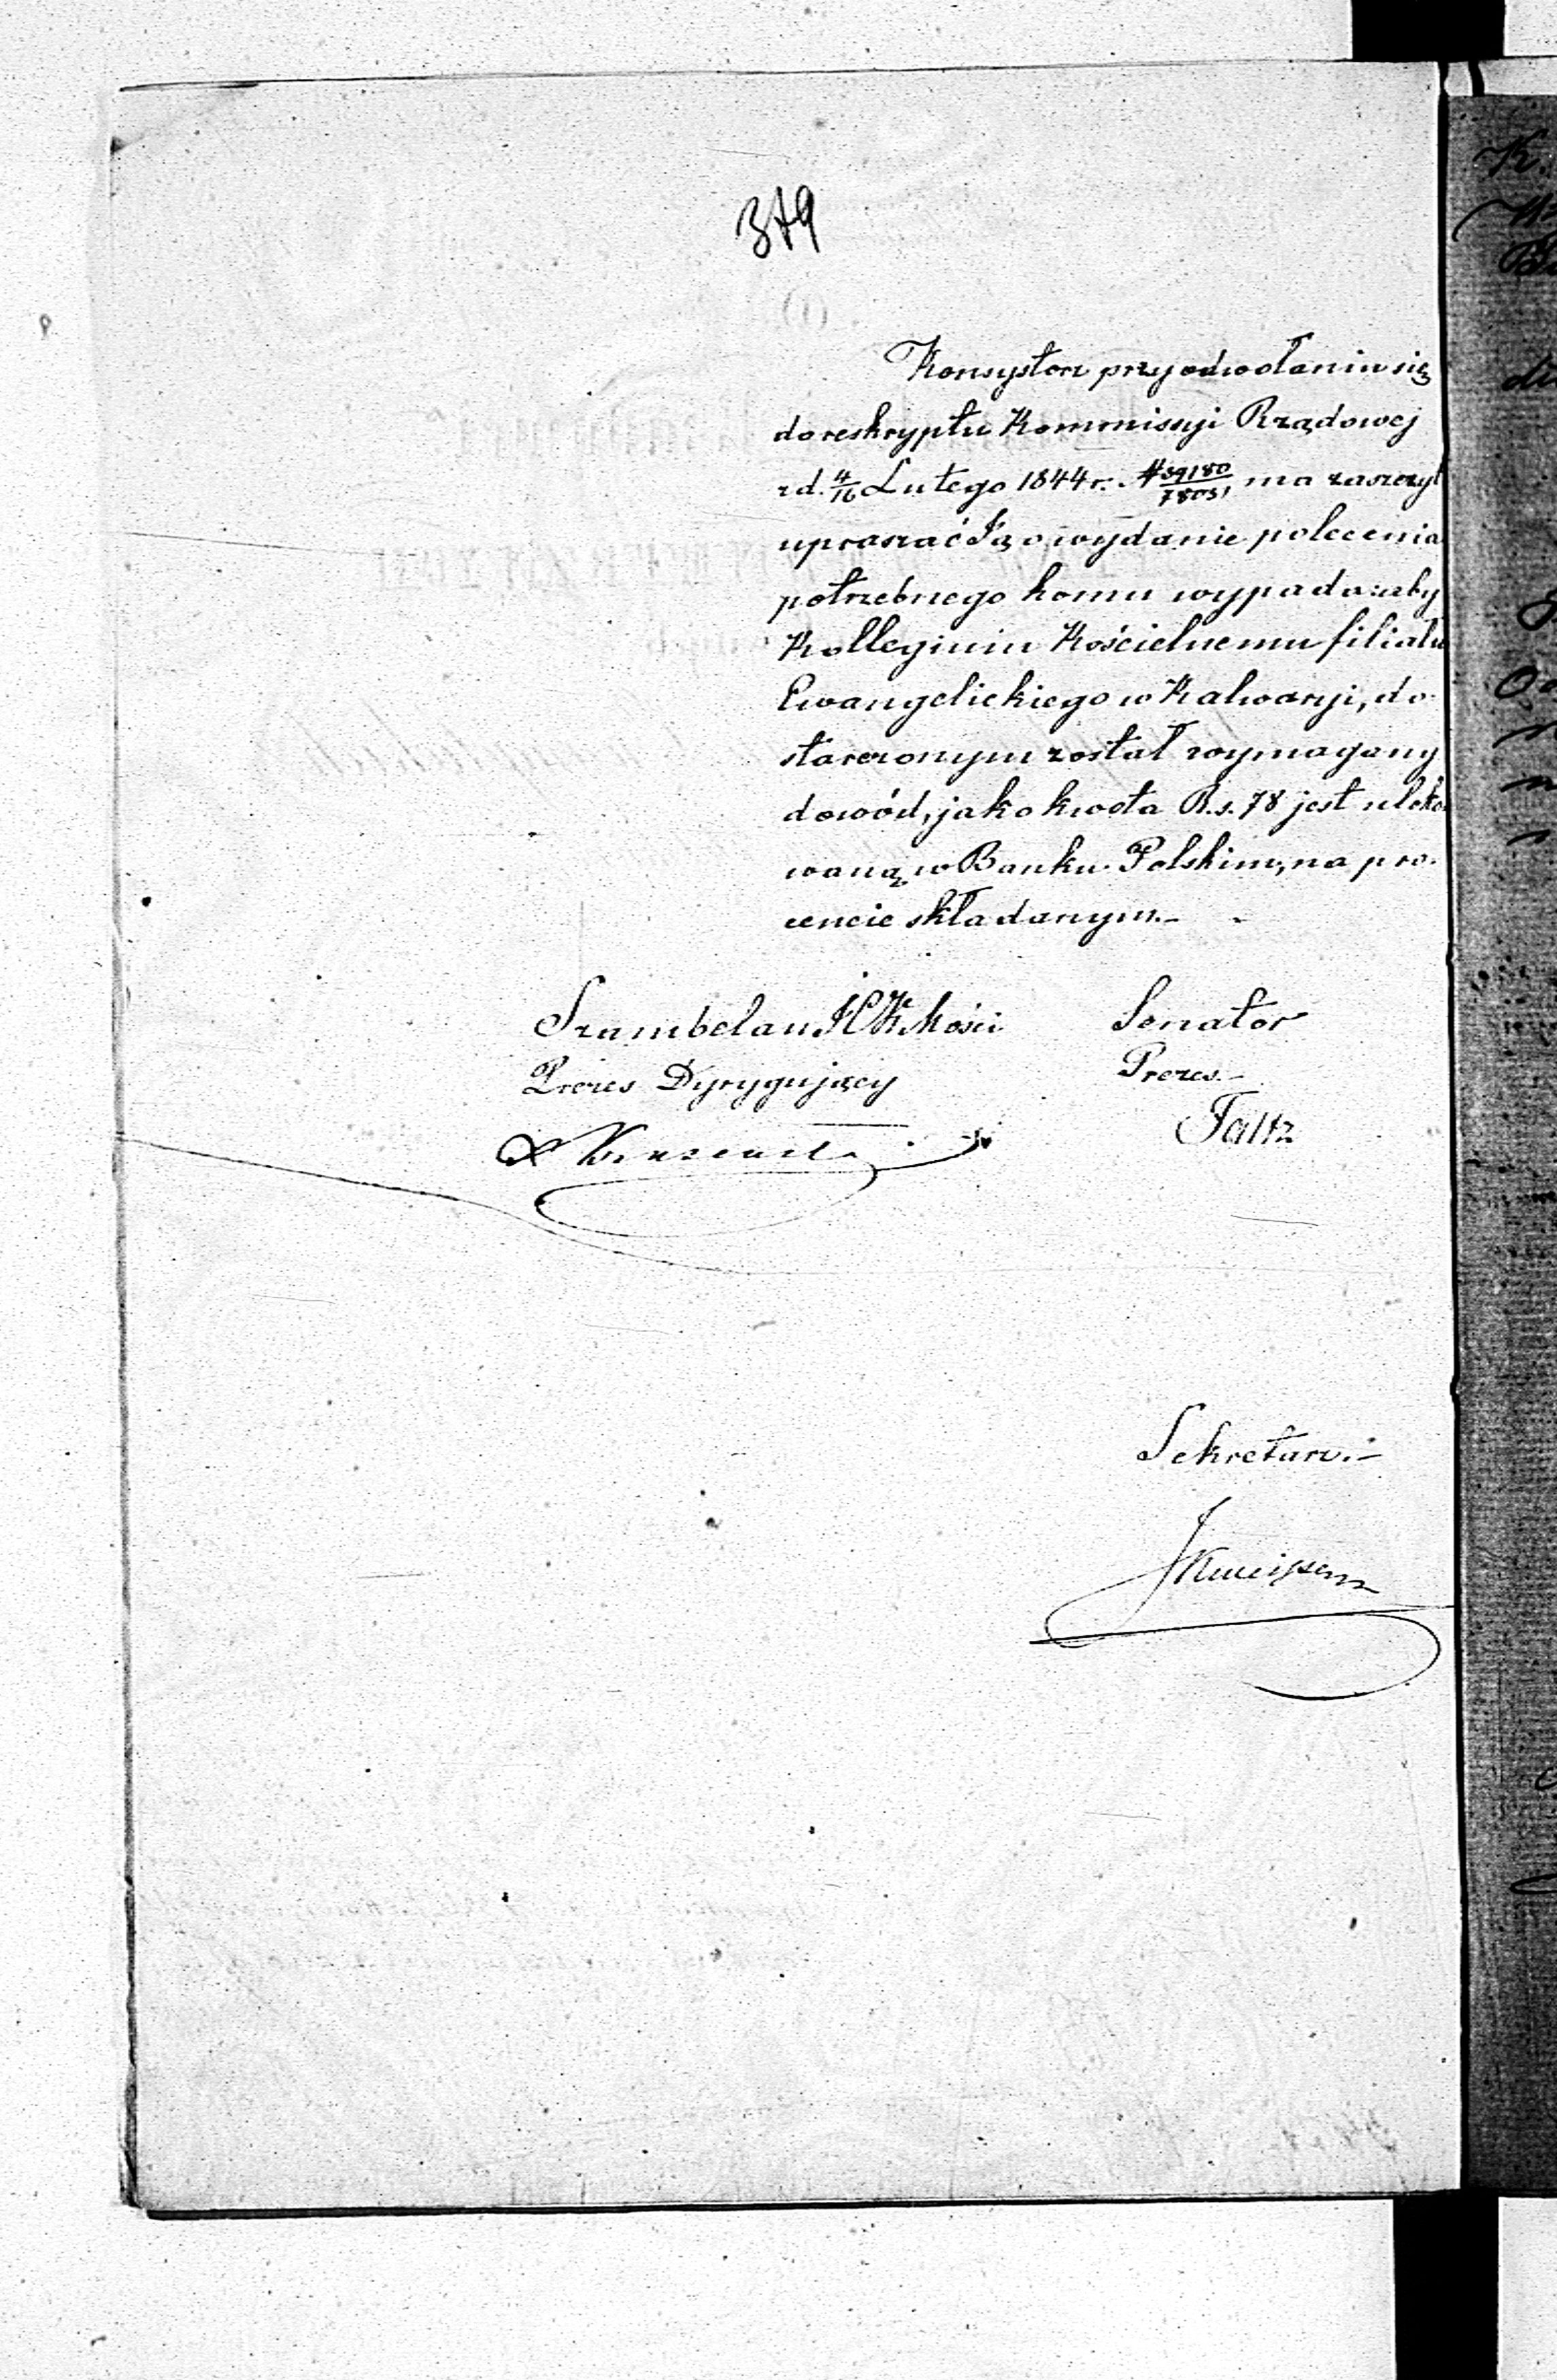 379
Konsystorz przy odwołaniu się
do reskryptu Kommissyi Rządowej
z d. 4/16 Lutego 1844 r. N 39180/78031 ma zaszczyt
upraszać Ją o wydanie polecenia
potrzebnego komu wypada żeby
Kollegium Kościelnemu filiału
Ewangelickiego w Kalwaryi, do-
starczonym został wymagany
dowód, jako kwota R.s. 78 jest uloko-
waną w Banku Polskim, na pro-
cencie składanym.-
Szambelan JCK Mości
Prezes Dyrygujący
Senator
Prezes.-
Faltz
Sekretarz.-